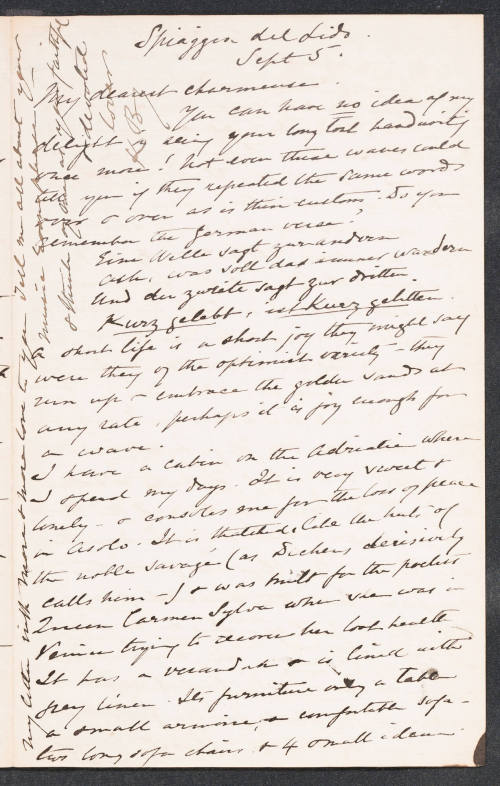 Spiaggia del Lido.
Sept 5.
My dearest charmeuse.
You can have no idea of my
delight in seeing your long lost handwriting
once more! Not even these waves could
tell you if they repeated the same words
over & over as is their custom. Do you
remember the German verse?
Eine Welle sagt zur andern
Ach, was soll das immer wandern
Und die zweite sagt zur dritten
Kurz gelebt, ist Kurz gelitten.
A short life is a short joy they might say
were they of the optimist variety - they
run up & embrace the golden sands at
any rate, perhaps it is joy enough for
a wave.
I have a cabin on the Adriatic where
I spend my days. It is very sweet &
lonely - & consoles me for the loss of peace
in Asolo. It is thatched, like the huts of
the noble savage (as Dickens derisively
calls him -) & was built for the poetess
Queen Carmen Sylva when she was in
Venice trying to recover her lost health
It has a verandah & is lined with
grey linen. Its furniture only a table
a small armoire, a comfortable sofa -
two long sofa chairs & 4 small idem.
my letter with more & more love to you tell me all about your
music
& your faithful
& devoted